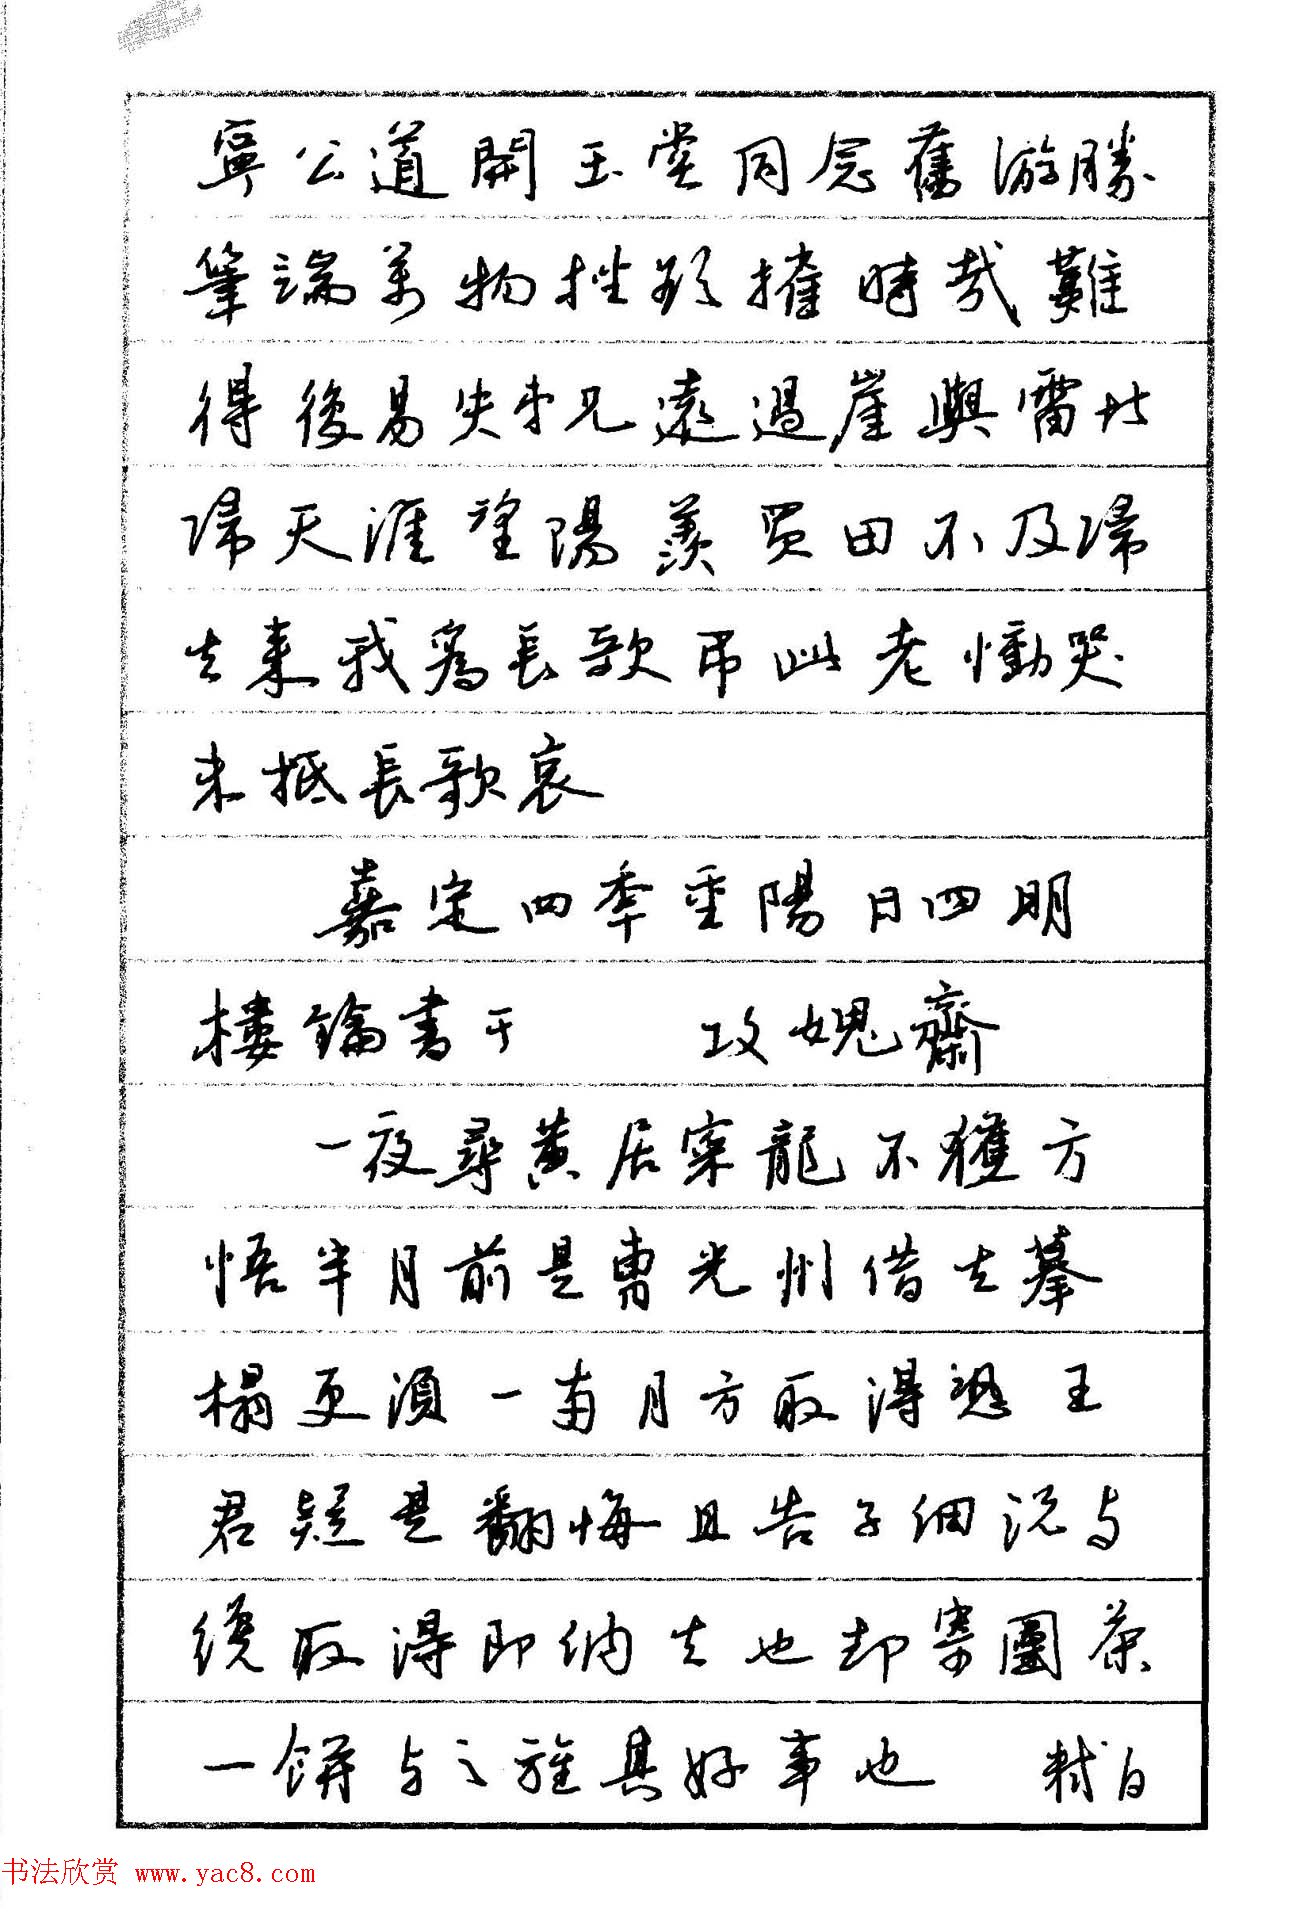 寧公道開玉堂同念舊游勝
筆端萬物挫欲摧時哉難
得後易失弟兄遠過崖與雷北
歸天涯望陽羨買田不及歸
去來我爲長歌弔此老慟哭
未抵長歌哀
嘉定四年重陽日四明
樓鑰書于 攻媿齋
一夜尋黃居寀龍不獲方
悟半月前是曹光州借去摹
榻更須一兩月方取得恐王
君疑是翻悔且告子細說与
纔取得即納去也却寄團茶
一餅与之旌其好事也 軾白
书法欣赏 www.yac8.com